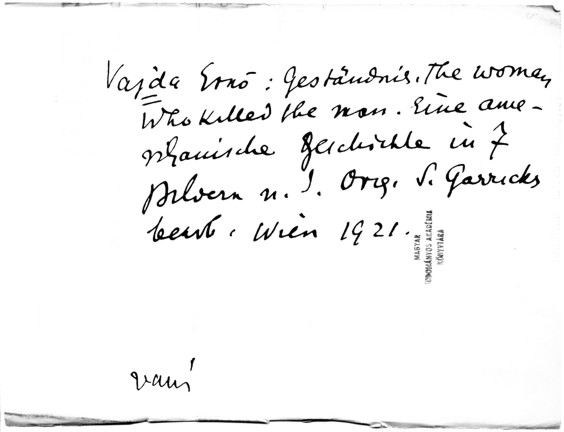 Vajda Ernő: Geständnis. The woman
who killed the man. Eine ame-
rikanische Geschichte in 7
Bildern n. d. Orig. S. Garricks
bearb. Wien 1921.
MAGYAR
TUDOMÁNYOS AKADÉMIA
KÖNYVTÁRA